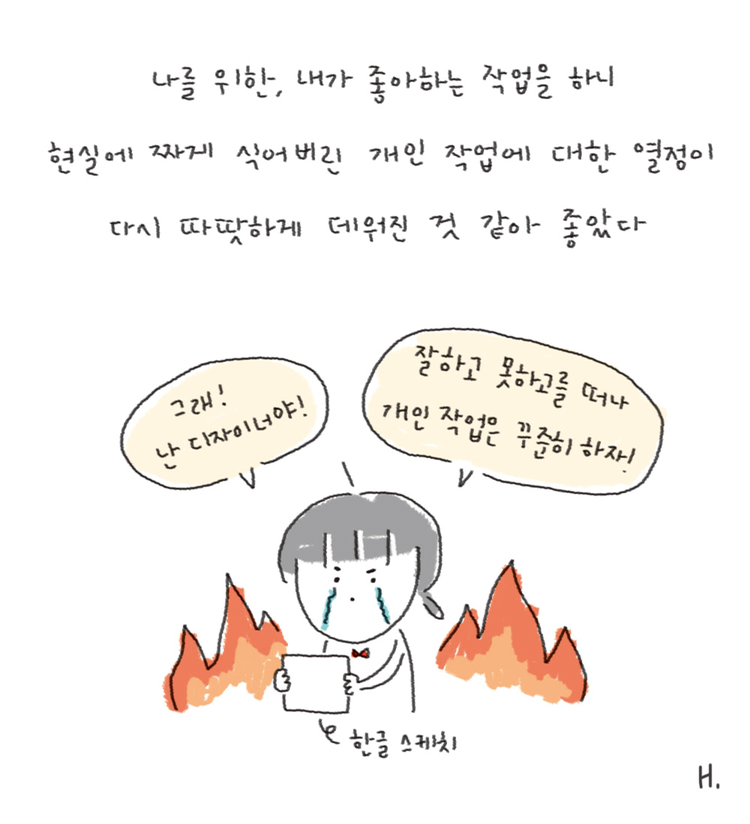 나를 위한, 내가 좋아하는 작업을 하니
현실에 짜게 식어버린 개인 작업에 대한 열정이
다시 따땃하게 데워진 것 같아 좋았다
그래!
난 디자이너야!
잘하고 못하고를 떠나
개인 작업은 꾸준히 하자!
한글 스케치
H.